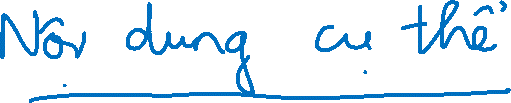 Nội dung cụ thể